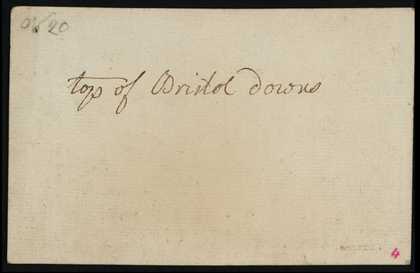 top of Bristol downs
4